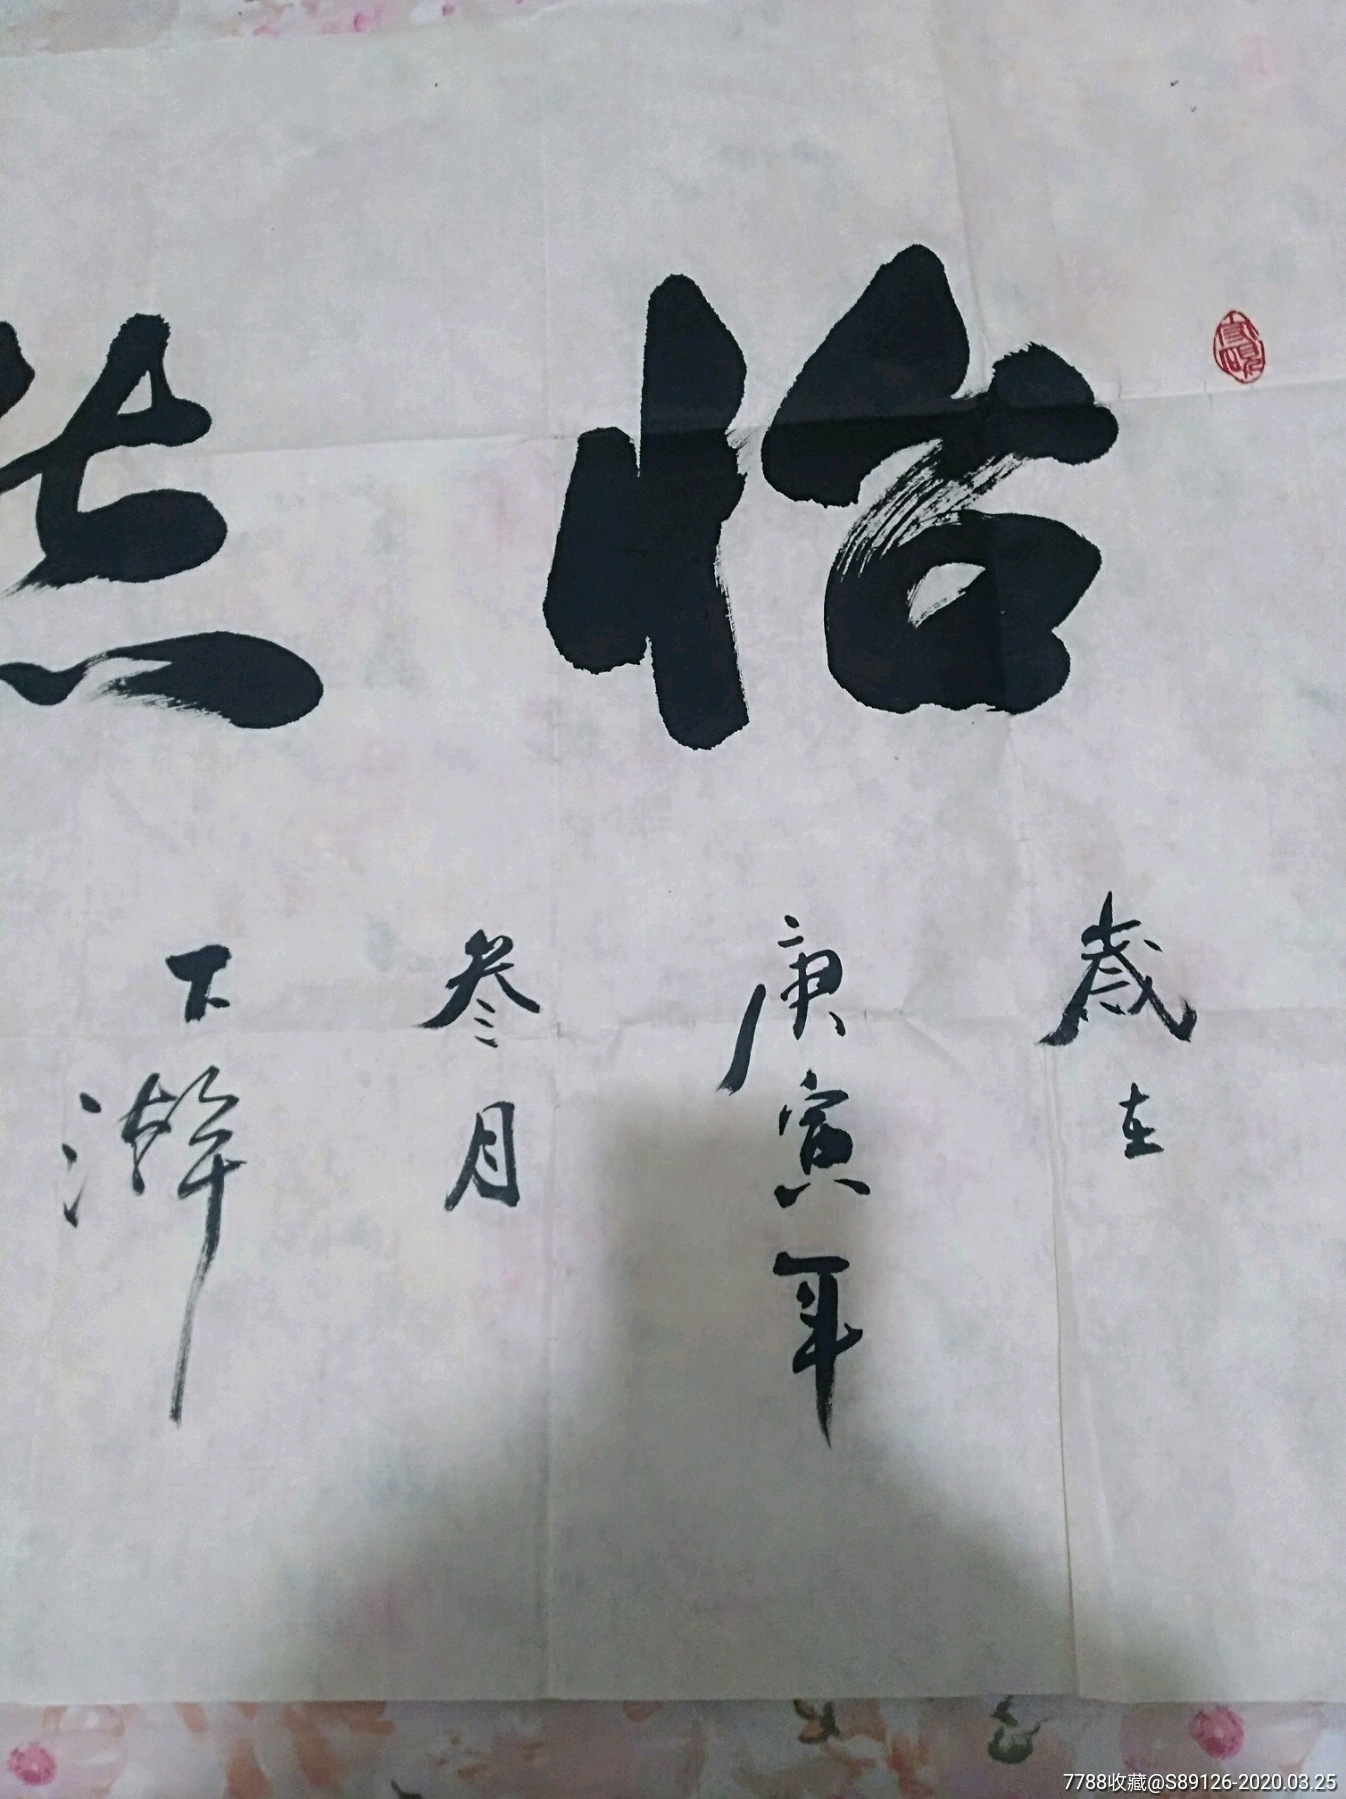 怡
歲在
庚寅年
叁月
下澣
7788收藏@S89126-2020.03.25